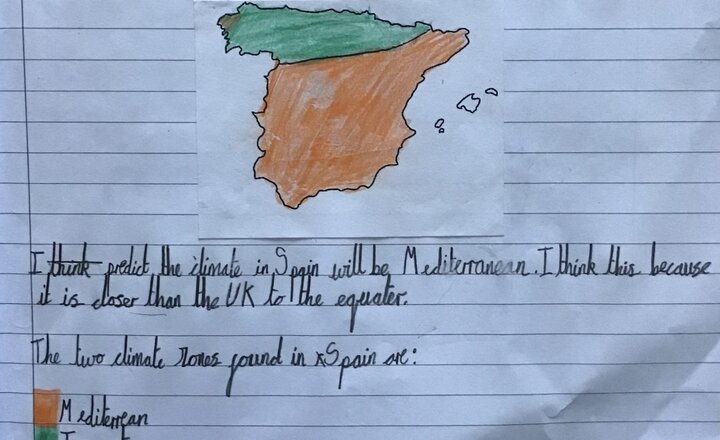 I think predict, the climate in Spain will be Mediterranean. I think this because
it is closer than the UK to the equater.
The two climate zones found in Spain are:
Mediterrean